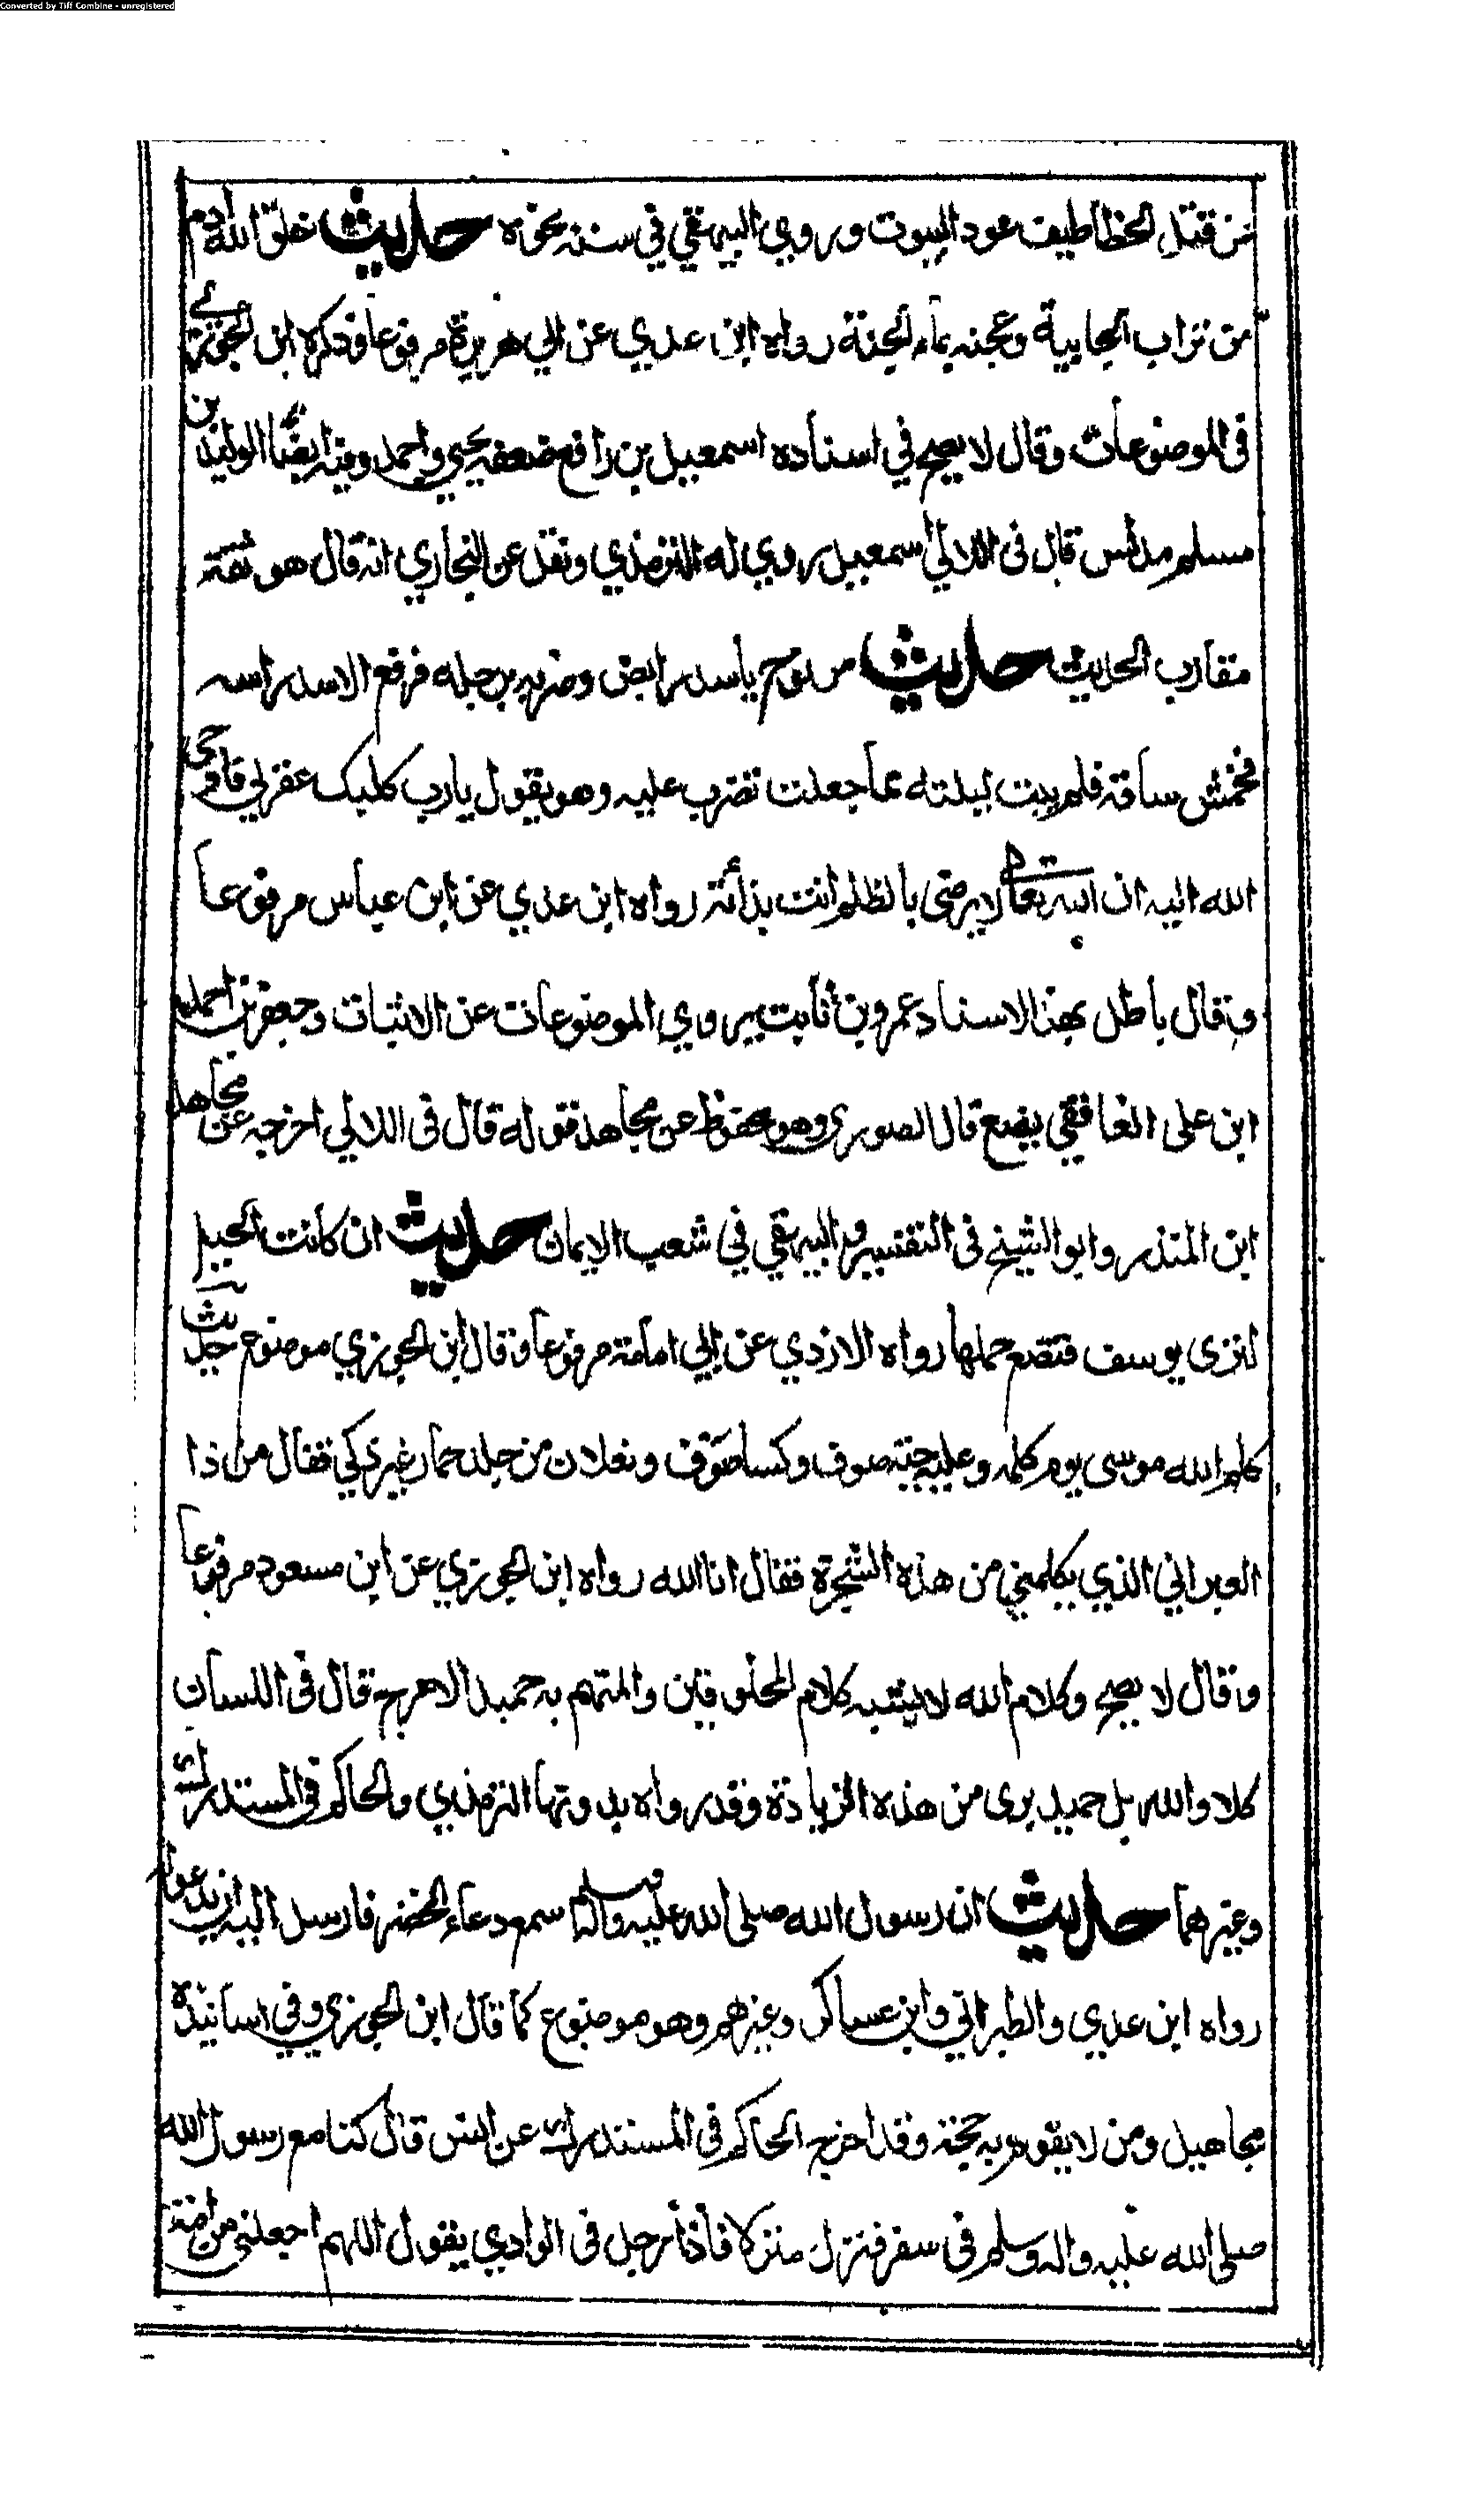 Converted by Tiff Combine - unregistered
عن قتل الخطاطيف عود البيوت وروي البيهقي في سننه نحوه حديث خلق الله ادم
من تراب الجابية وعجنه بماء الجنة رواه ابن عدي عن ابي هريرة مرفوعا وذكره ابن الجوزي
في الموضوعات وقال لا يصح في اسناده اسمعيل بن رافع ضعفه يحيي واحمد وفيه ايضا الوليد بن
مسلم مدلس قال في اللالي اسمعيل روي له الترمذي ونقل عن البخاري انه قال هو ثقة
مقارب الحديث حديث مر نوح باسد رابض وضربه برجله فرفع الاسد راسه
فخمش ساقه فلم يبت ليلته مما جعلت تضرب عليه وهو يقول يارب كلبك عقرني فاوحي
الله اليه ان الله تعالى لا يرضى بالظلم انت بدأته رواه ابن عدي عن ابن عباس مرفوعا
وقال باطل بهذا الاسناد عمرو بن ثابت يروي الموضوعات عن الاثبات وجعفر بن احمد
ابن على الغافقي يضع قال الصوري وهو محفوظ عن مجاهد قوله قال في اللالي اخرجه عن مجاهد
ابن المنذر وابو الشيخ في التفسير والبيهقي في شعب الايمان حديث ان كانت الحبلى
لترى يوسف فتضع حملها رواه الازدي عن ابي امامة مرفوعا وقال ابن الجوزي موضوع حديث
كلم الله موسى يوم كلمه وعليه جبة صوف وكساء صوف ونعلان من جلد حمار غير ذكي فقال من ذا
العبراني الذي يكلمني من هذه الشجرة فقال انا الله رواه ابن الجوزي عن ابن مسعود مرفوعا
وقال لا يصح وكلام الله لا يشبه كلام المخلوقين والمتهم به حميد الاعرج قال في اللسان
كلا والله بل حميد برى من هذه الزيادة وقد رواه بدونها الترمذي والحاكم في المستدرك
وغيرهما حديث ان رسول الله صلى الله عليه واله وسلم سمع دعاء الخضر فارسل اليه ان يدعو له
رواه ابن عدي والطبراني وابن عساكر وغيرهم وهو موضوع كما قال ابن الجوزي وفي اسانيده
مجاهيل ومن لا يقوم به حجة وقد اخرج الحاكم في المستدرك عن انس قال كنا مع رسول الله
صلى الله عليه واله وسلم في سفر فنزل منزلا فاذا رجل في الوادي يقول اللهم اجعلني من امة